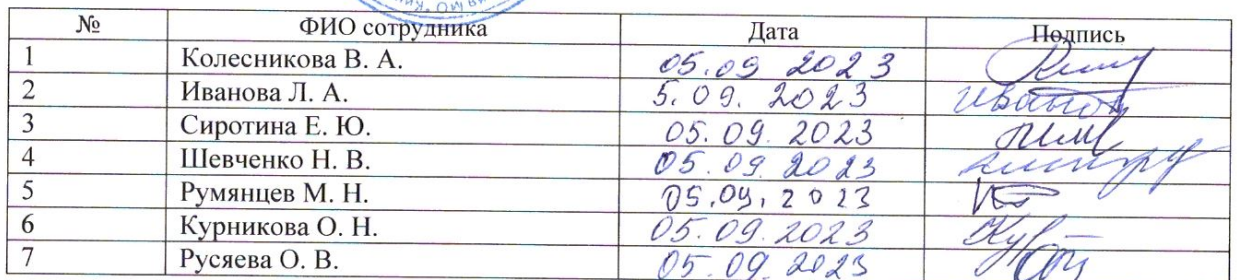 № ФИО сотрудника Дата Подпись
1 Колесникова В. А. 05.09 2023
2 Иванова Л. А. 5.09. 2023 Иванов
3 Сиротина Е. Ю. 05.09.2023
4 Шевченко Н. В. 05.09.2023
5 Румянцев М. Н. 05.09.2023
6 Курникова О. Н. 05.09.2023
7 Русяева О. В. 05.09 2023